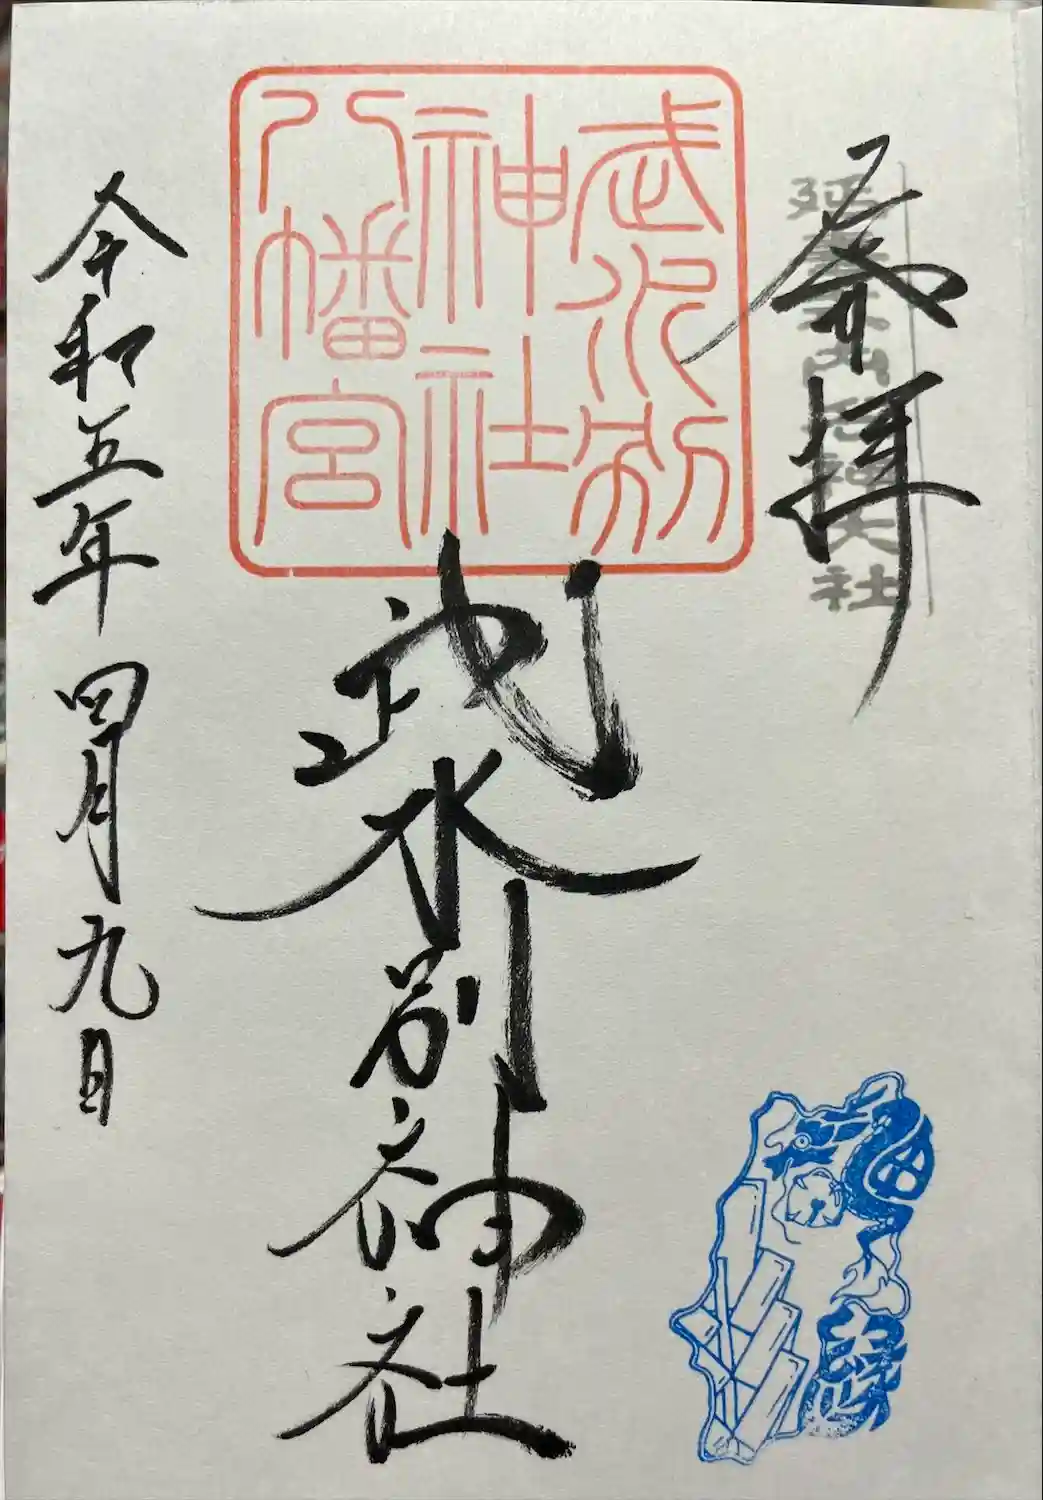 奉拝
延喜式内名神大社
武水別
神社
八幡宮
武水別神社
令和五年四月九日